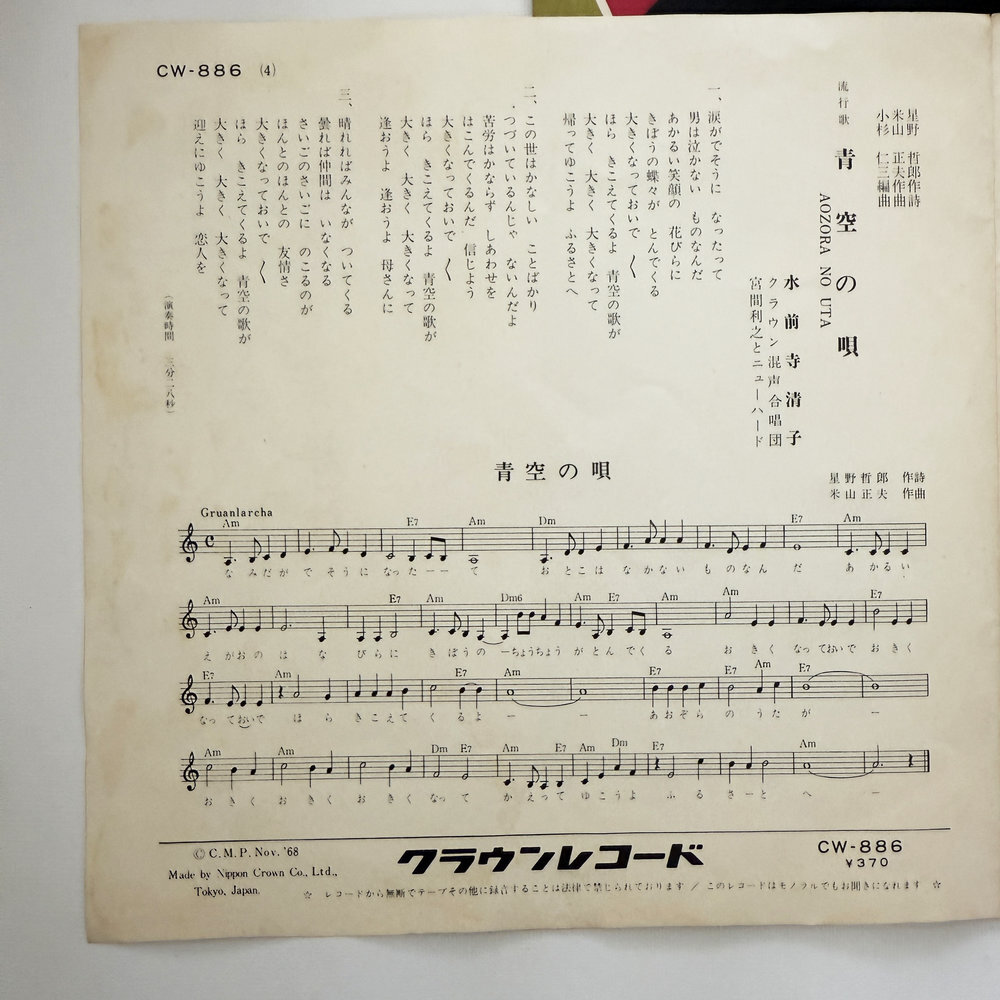 CW-886 (4)
星野哲郎作詩
米山正夫作曲
小杉仁三編曲
流行歌
青空の唄
AOZORA NO UTA
水前寺清子
クラウン混声合唱団
宮間利之とニューハード
一、涙がでそうに なったって
男は泣かない ものなんだ
あかるい笑顔の 花びらに
きぼうの蝶々が とんでくる
大きくなっておいで 〱
ほら きこえてくるよ 青空の歌が
大きく 大きく 大きくなって
帰ってゆこうよ ふるさとへ
二、この世はかなしい ことばかり
つづいているんじゃ ないんだよ
苦労はかならず しあわせを
はこんでくるんだ 信じよう
大きくなっておいで 〱
ほら きこえてくるよ 青空の歌が
大きく 大きく 大きくなって
逢おうよ 逢おうよ 母さんに
三、晴れればみんなが ついてくる
曇れば仲間は いなくなる
さいごのさいごに のこるのが
ほんとのほんとの 友情さ
大きくなっておいで 〱
ほら きこえてくるよ 青空の歌が
大きく 大きく 大きくなって
迎えにゆこうよ 恋人を
(演奏時間 三分二八秒)
青空の唄
星野哲郎 作詩
米山正夫 作曲
Gruanlarcha
Am E7 Am Dm E7 Am
なみだが でそうに なったーーて おとこは なかない ものなん だ あかるい
Am E7 Am Dm6 Am E7 Am Am E7
えがおの は な びらに きぼうの ーちょうちょう がとん でくる おきく なっておいで おきく
E7 Am E7 Am E7 Am E7
なっておいで ほら きこえて くるよ ー ー あおぞら のうた が ー
Am Am Am Dm E7 Am E7 Am Dm E7 Am
おきく おきく おきく なって かえって ゆこうよ ふる さーと へ ー
© C.M.P. Nov. '68
Made by Nippon Crown Co., Ltd.,
Tokyo, Japan.
クラウンレコード
CW-886
¥370
☆ レコードから無断でテープその他に録音することは法律で禁じられております / このレコードはモノラルでもお聞きになれます ☆